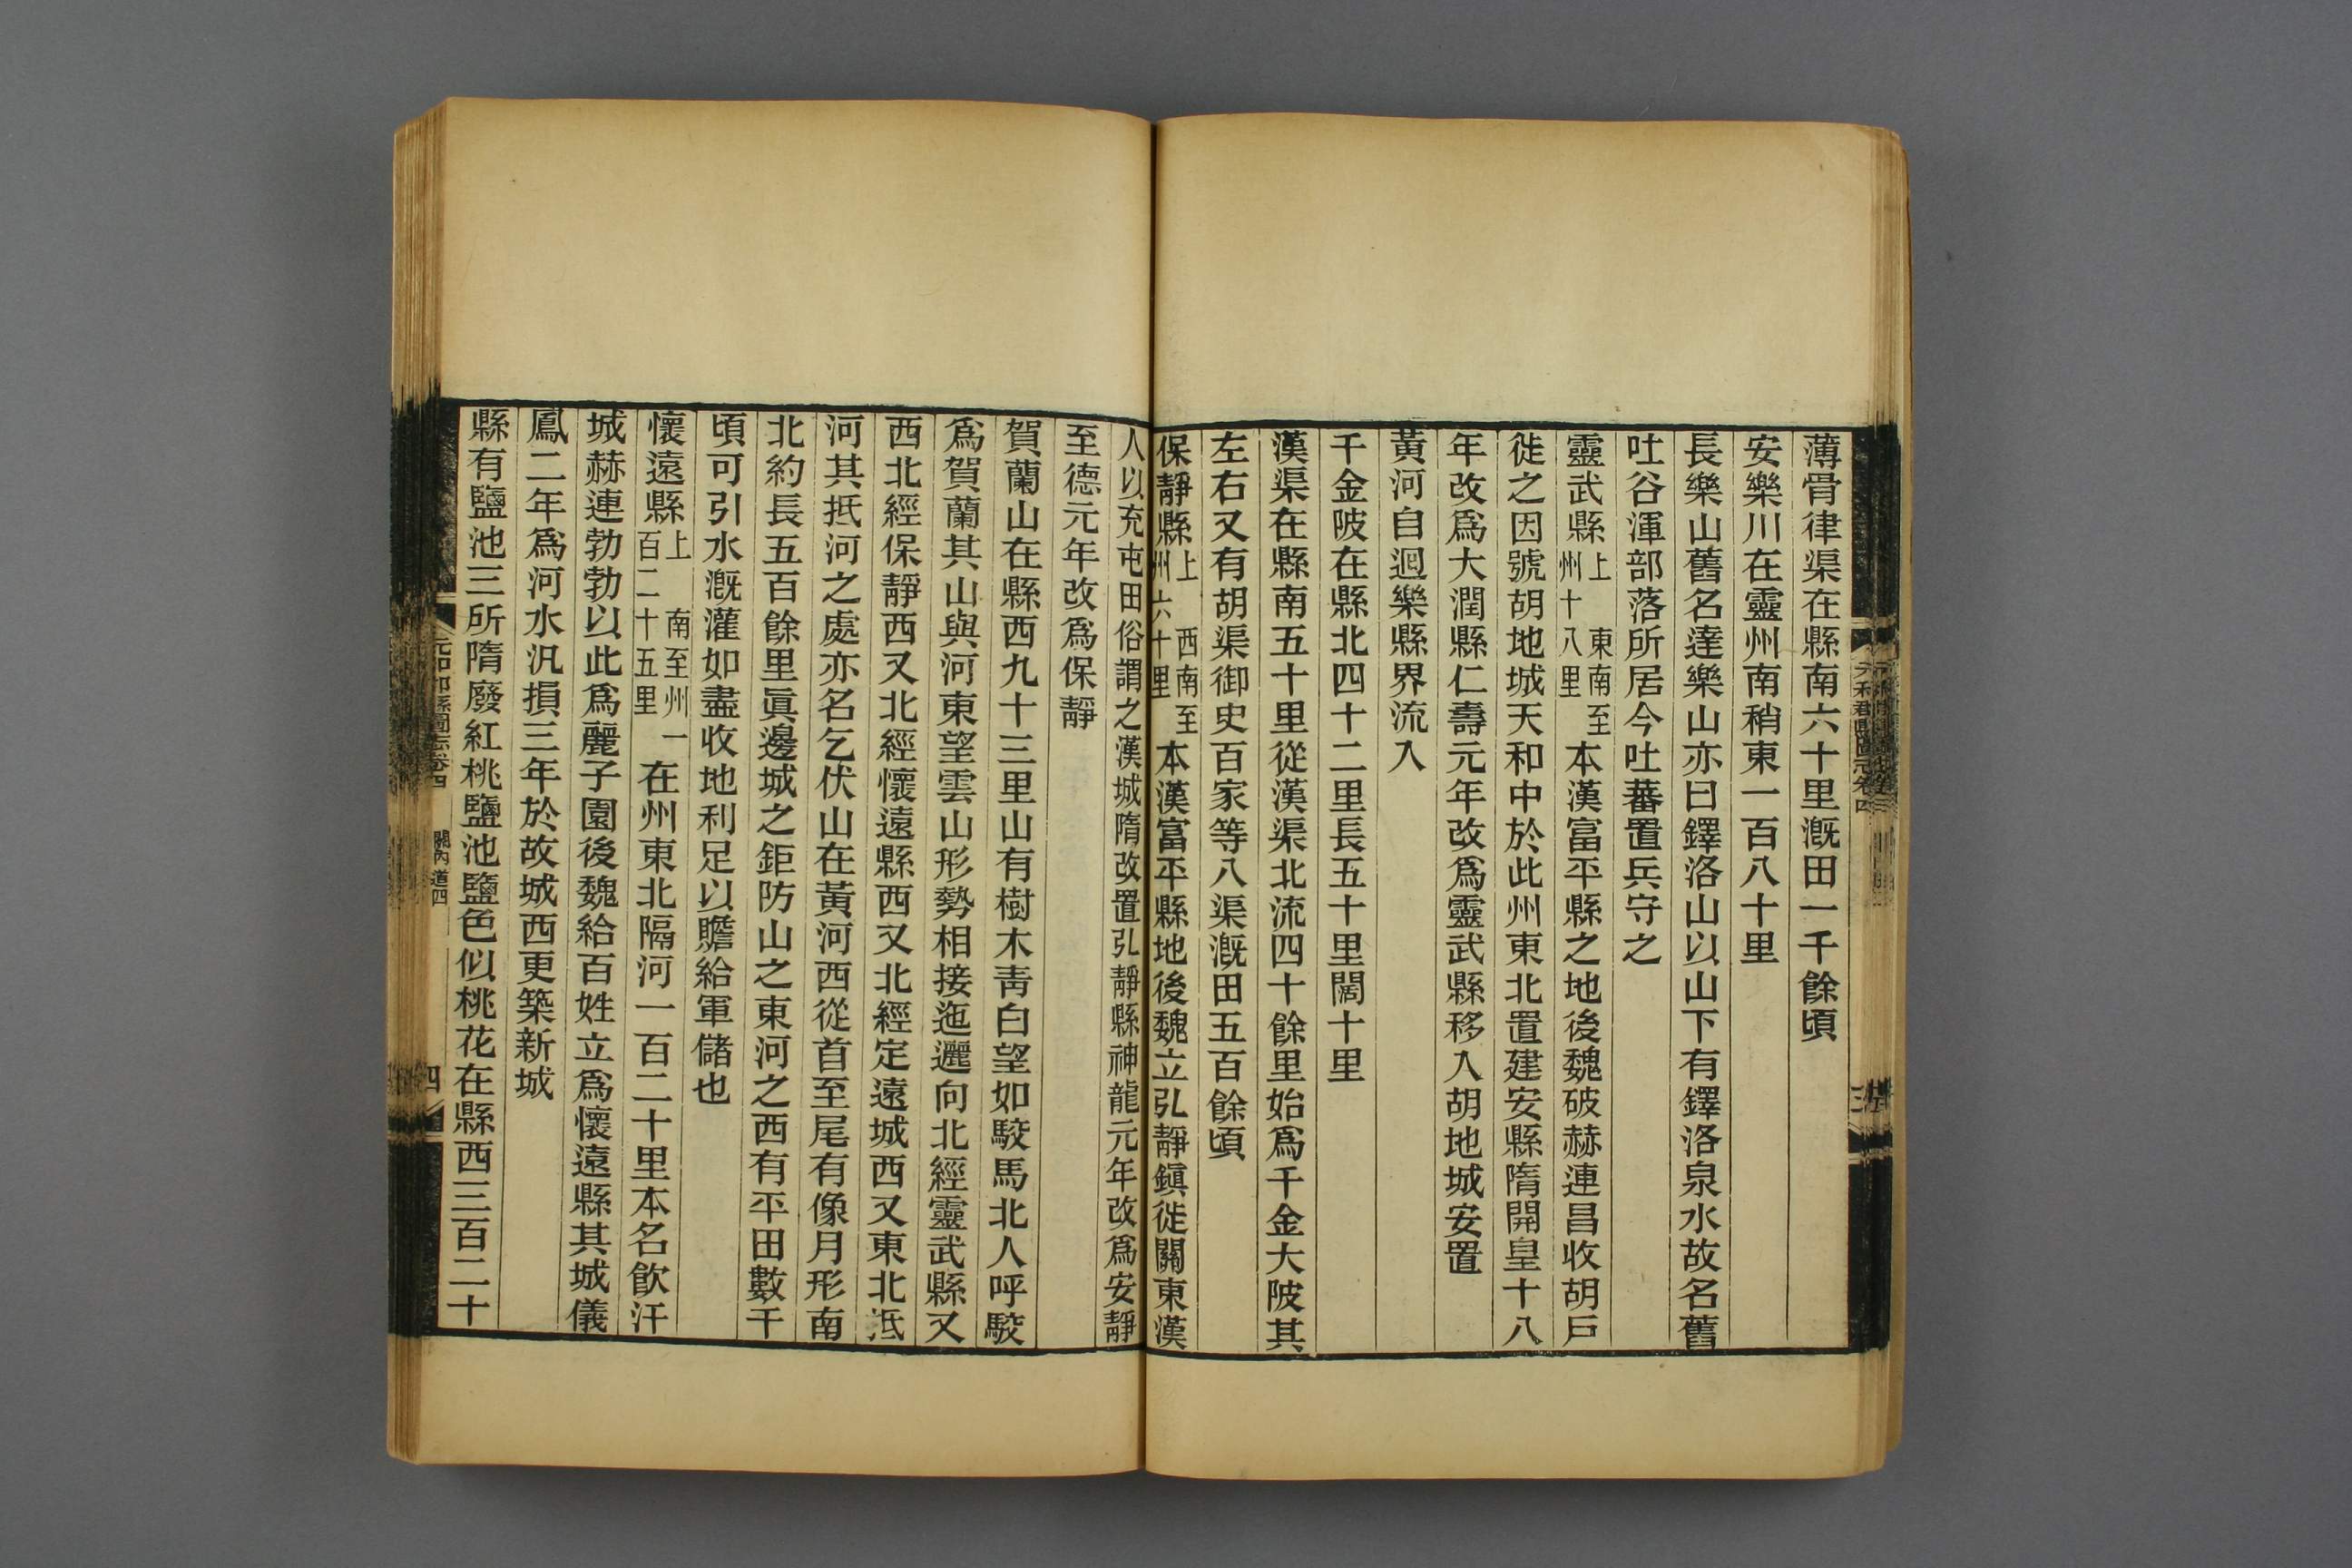 薄骨律渠在縣南六十里漑田一千餘頃
安樂川在靈州南稍東一百八十里
長樂山舊名達樂山亦曰鐸洛山以山下有鐸洛泉水故名舊
吐谷渾部落所居今吐蕃置兵守之
靈武縣上 東南至州十八里本漢富平縣之地後魏破赫連昌收胡戶
徙之因號胡地城天和中於此州東北置建安縣隋開皇十八
年改爲大潤縣仁壽元年改爲靈武縣移入胡地城安置
黃河自迴樂縣界流入
千金陂在縣北四十二里長五十里闊十里
漢渠在縣南五十里從漢渠北流四十餘里始爲千金大陂其
左右又有胡渠御史百家等八渠漑田五百餘頃
保靜縣上 西南至州六十里本漢富平縣地後魏立弘靜鎭徙關東漢
人以充屯田俗謂之漢城隋改置弘靜縣神龍元年改爲安靜
至德元年改爲保靜
賀蘭山在縣西九十三里山有樹木靑白望如駮馬北人呼駮
爲賀蘭其山與河東望雲山形勢相接迤邐向北經靈武縣又
西北經保靜西又北經懷遠縣西又北經定遠城西又東北抵
河其抵河之處亦名乞伏山在黃河西從首至尾有像月形南
北約長五百餘里眞邊城之鉅防山之東河之西有平田數千
頃可引水漑灌如盡收地利足以贍給軍儲也
懷遠縣上 南至州一百二十五里在州東北隔河一百二十里本名飮汗
城赫連勃勃以此爲麗子園後魏給百姓立爲懷遠縣其城儀
鳳二年爲河水汎損三年於故城西更築新城
縣有鹽池三所隋廢紅桃鹽池鹽色似桃花在縣西三百二十
元和郡縣圖志卷四 關內道四
四